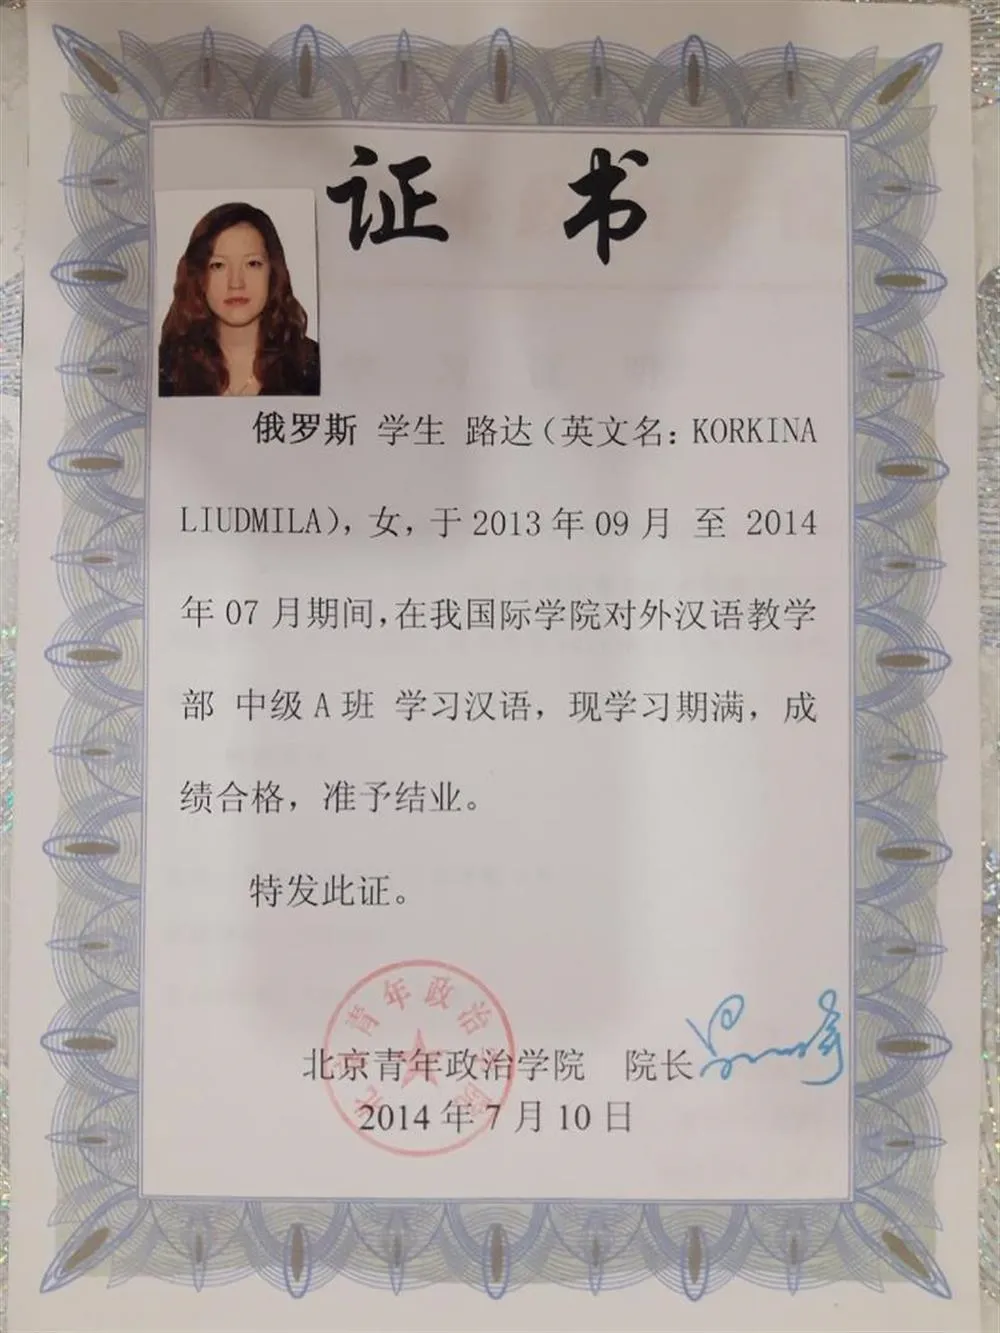 证 书
俄罗斯 学生 路达（英文名：KORKINA
LIUDMILA），女，于 2013 年 09 月 至 2014
年 07 月期间，在我国际学院对外汉语教学
部 中级 A 班 学习汉语，现学习期满，成
绩合格，准予结业。
特发此证。
北京青年政治学院 院长
2014 年 7 月 10 日
北京青年政治学院